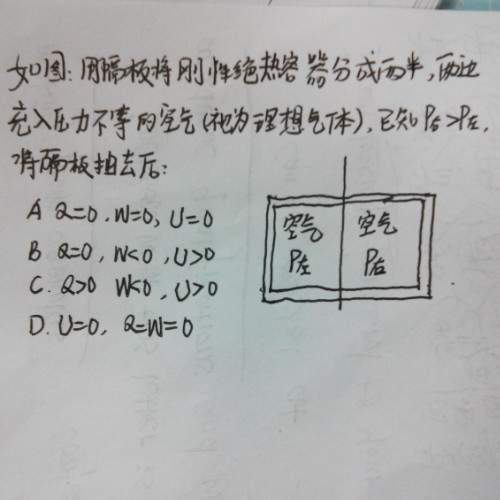 如图:用隔板将刚性绝热容器分成两半,两边
充入压力不等的空气(视为理想气体),已知P右>P左,
将隔板抽去后:
A Q=0, W=0, U=0
B. Q=0, W<0, U>0
C. Q>0 W<0, U>0
D. U=0, Q=W=0
空气 空气
P左 P右